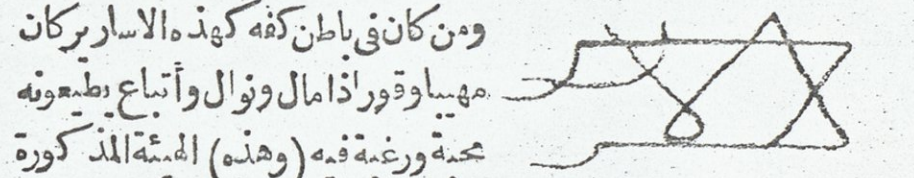 ومن كان في باطن كفه كهذه الاسارير كان
مهيبا وقورا ذا مال ونوال وأتباع يطيعونه
محبة ورغبة فيه (وهذه) الهيئة المذكورة